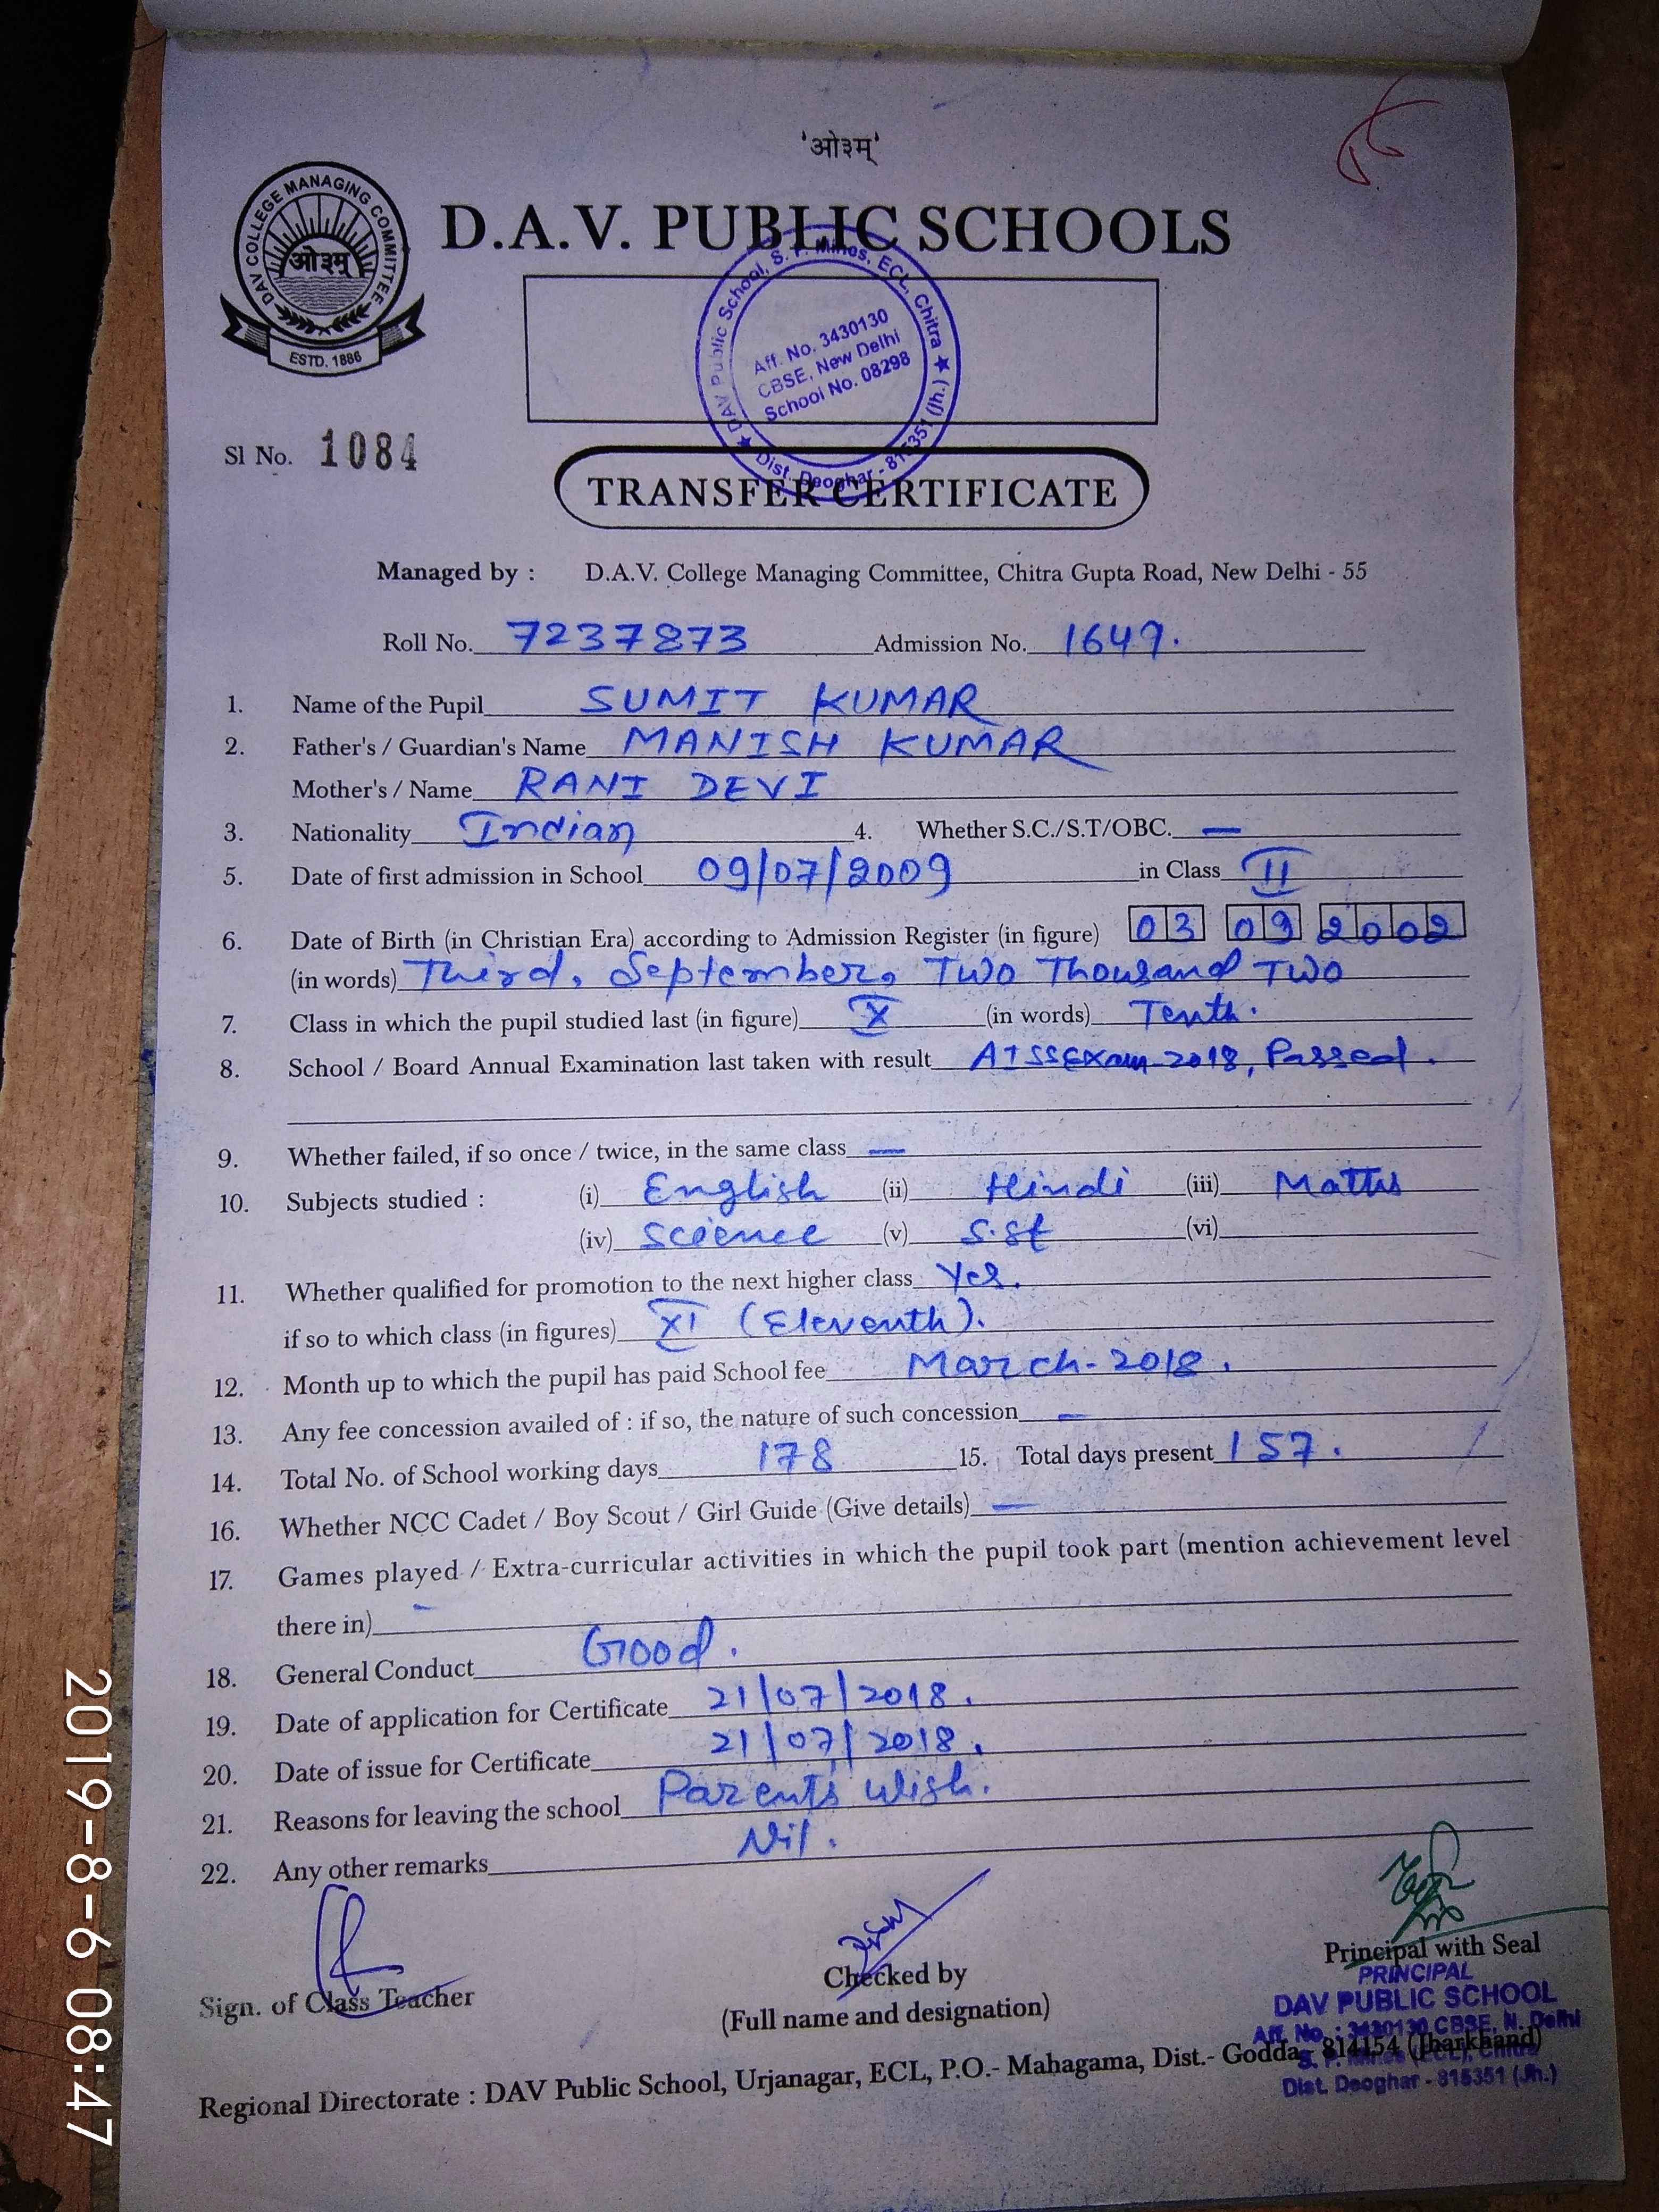 'ओ३म्'
DAV COLLEGE MANAGING COMMITTEE
ओ३म्
ESTD. 1886
D.A.V. PUBLIC SCHOOLS
DAV Public School, S. P. Mines, ECL, Chitra
Aff. No. 3430130
CBSE, New Delhi
School No. 08298
Dist. Deoghar - 815351 (Jh.)
Sl No. 1084
TRANSFER CERTIFICATE
Managed by : D.A.V. College Managing Committee, Chitra Gupta Road, New Delhi - 55
Roll No. 7237873 Admission No. 1649.
1. Name of the Pupil SUMIT KUMAR
2. Father's / Guardian's Name MANISH KUMAR
Mother's / Name RANI DEVI
3. Nationality Indian 4. Whether S.C./S.T/OBC. —
5. Date of first admission in School 09/07/2009 in Class II
6. Date of Birth (in Christian Era) according to Admission Register (in figure) 03 09 2002
(in words) Third, September, Two Thousand Two
7. Class in which the pupil studied last (in figure) X (in words) Tenth.
8. School / Board Annual Examination last taken with result AISSExam-2018, Passed.
9. Whether failed, if so once / twice, in the same class —
10. Subjects studied : (i) English (ii) Hindi (iii) Maths
(iv) Science (v) S.St (vi)
11. Whether qualified for promotion to the next higher class Yes.
if so to which class (in figures) XI (Eleventh).
12. Month up to which the pupil has paid School fee March-2018.
13. Any fee concession availed of : if so, the nature of such concession —
14. Total No. of School working days 178 15. Total days present 157.
16. Whether NCC Cadet / Boy Scout / Girl Guide (Give details) —
17. Games played / Extra-curricular activities in which the pupil took part (mention achievement level
there in) -
18. General Conduct Good.
19. Date of application for Certificate 21/07/2018.
20. Date of issue for Certificate 21/07/2018.
21. Reasons for leaving the school Parents wish.
22. Any other remarks Nil.
Sign. of Class Teacher
Checked by
(Full name and designation)
Principal with Seal
PRINCIPAL
DAV PUBLIC SCHOOL
Aff. No. : 3430130 CBSE, N. Delhi
S. P. Mines (ECL), Chitra
Dist. Deoghar - 815351 (Jh.)
Regional Directorate : DAV Public School, Urjanagar, ECL, P.O.- Mahagama, Dist.- Godda - 814154 (Jharkhand)
2019-8-6 08:47